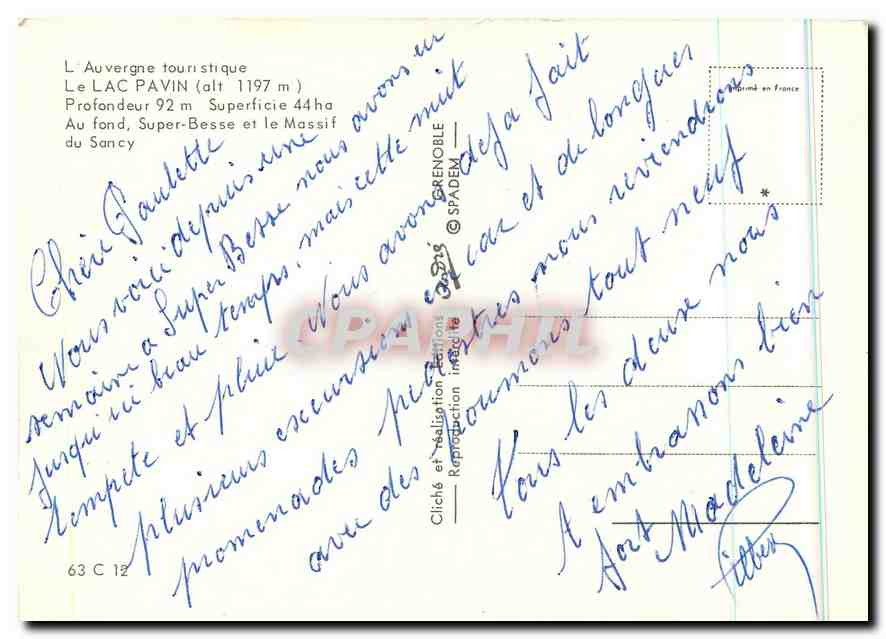 L'Auvergne touristique
Le LAC PAVIN (alt 1197 m)
Profondeur 92 m Superficie 44 ha
Au fond, Super-Besse et le Massif
du Sancy
Imprimé en France
*
Chère Paulette
Nous voici depuis une
semaine a Super Besse nous avons eu
jusqu'ici beau temps, mais cette nuit
tempete et pluie. Nous avons deja fait
plusieurs excursions en car et de longues
promenades pedestres nous reviendrons
avec des poumons tout neuf
Tous les deux nous
t embrassons bien
fort Madeleine
Cliché et réalisation Editions André GRENOBLE
Reproduction interdite © SPADEM
CPAPHIL
63 C 12